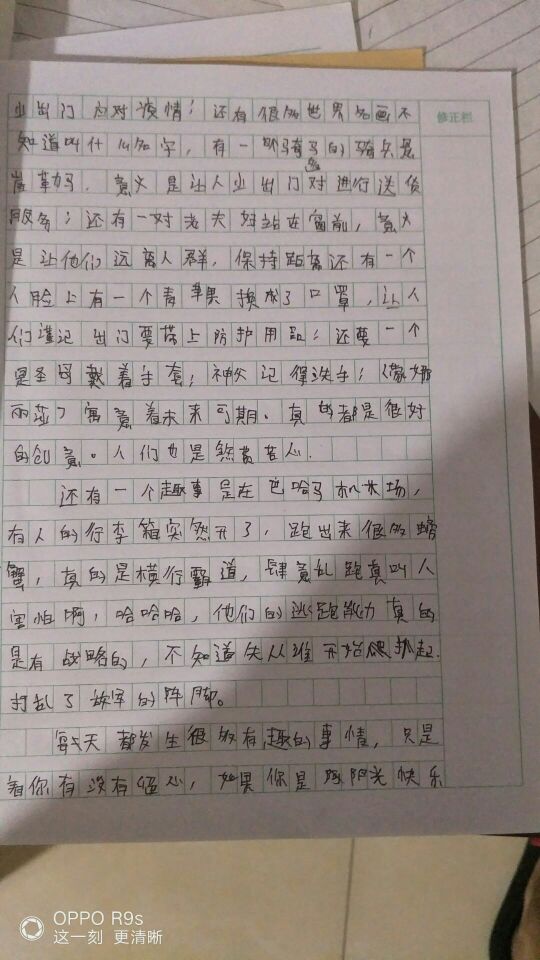 修正栏
业出门应对疫情；还有很多世界名画不
知道叫什么名字，有一 骑马的骑兵是
意义是让人业出门对进行送货
服务；还有一对老夫妇站在窗前，意义
是让他们远离人群，保持距离还有一个
人脸上有一个青苹果换成了口罩，让人
们谨记出门要带上防护用品；还要一个
是圣母戴着手套；神父记得洗手；《蒙娜
丽莎》寓意着未来可期。真的都是很好
的创意。人们也是煞费苦心.
还有一个趣事是在巴哈马机场，
有人的行李箱突然开了，跑出来很多螃
蟹，真的是横行霸道，肆意乱跑真叫人
害怕啊，哈哈哈，他们的逃跑能力真的
是有战略的，不知道先从谁开始 抓起.
打乱了 的阵脚。
每天都发生很多有趣的事情，只是
看你有没有 心，如果你是 阳光快乐
OPPO R9s
这一刻 更清晰